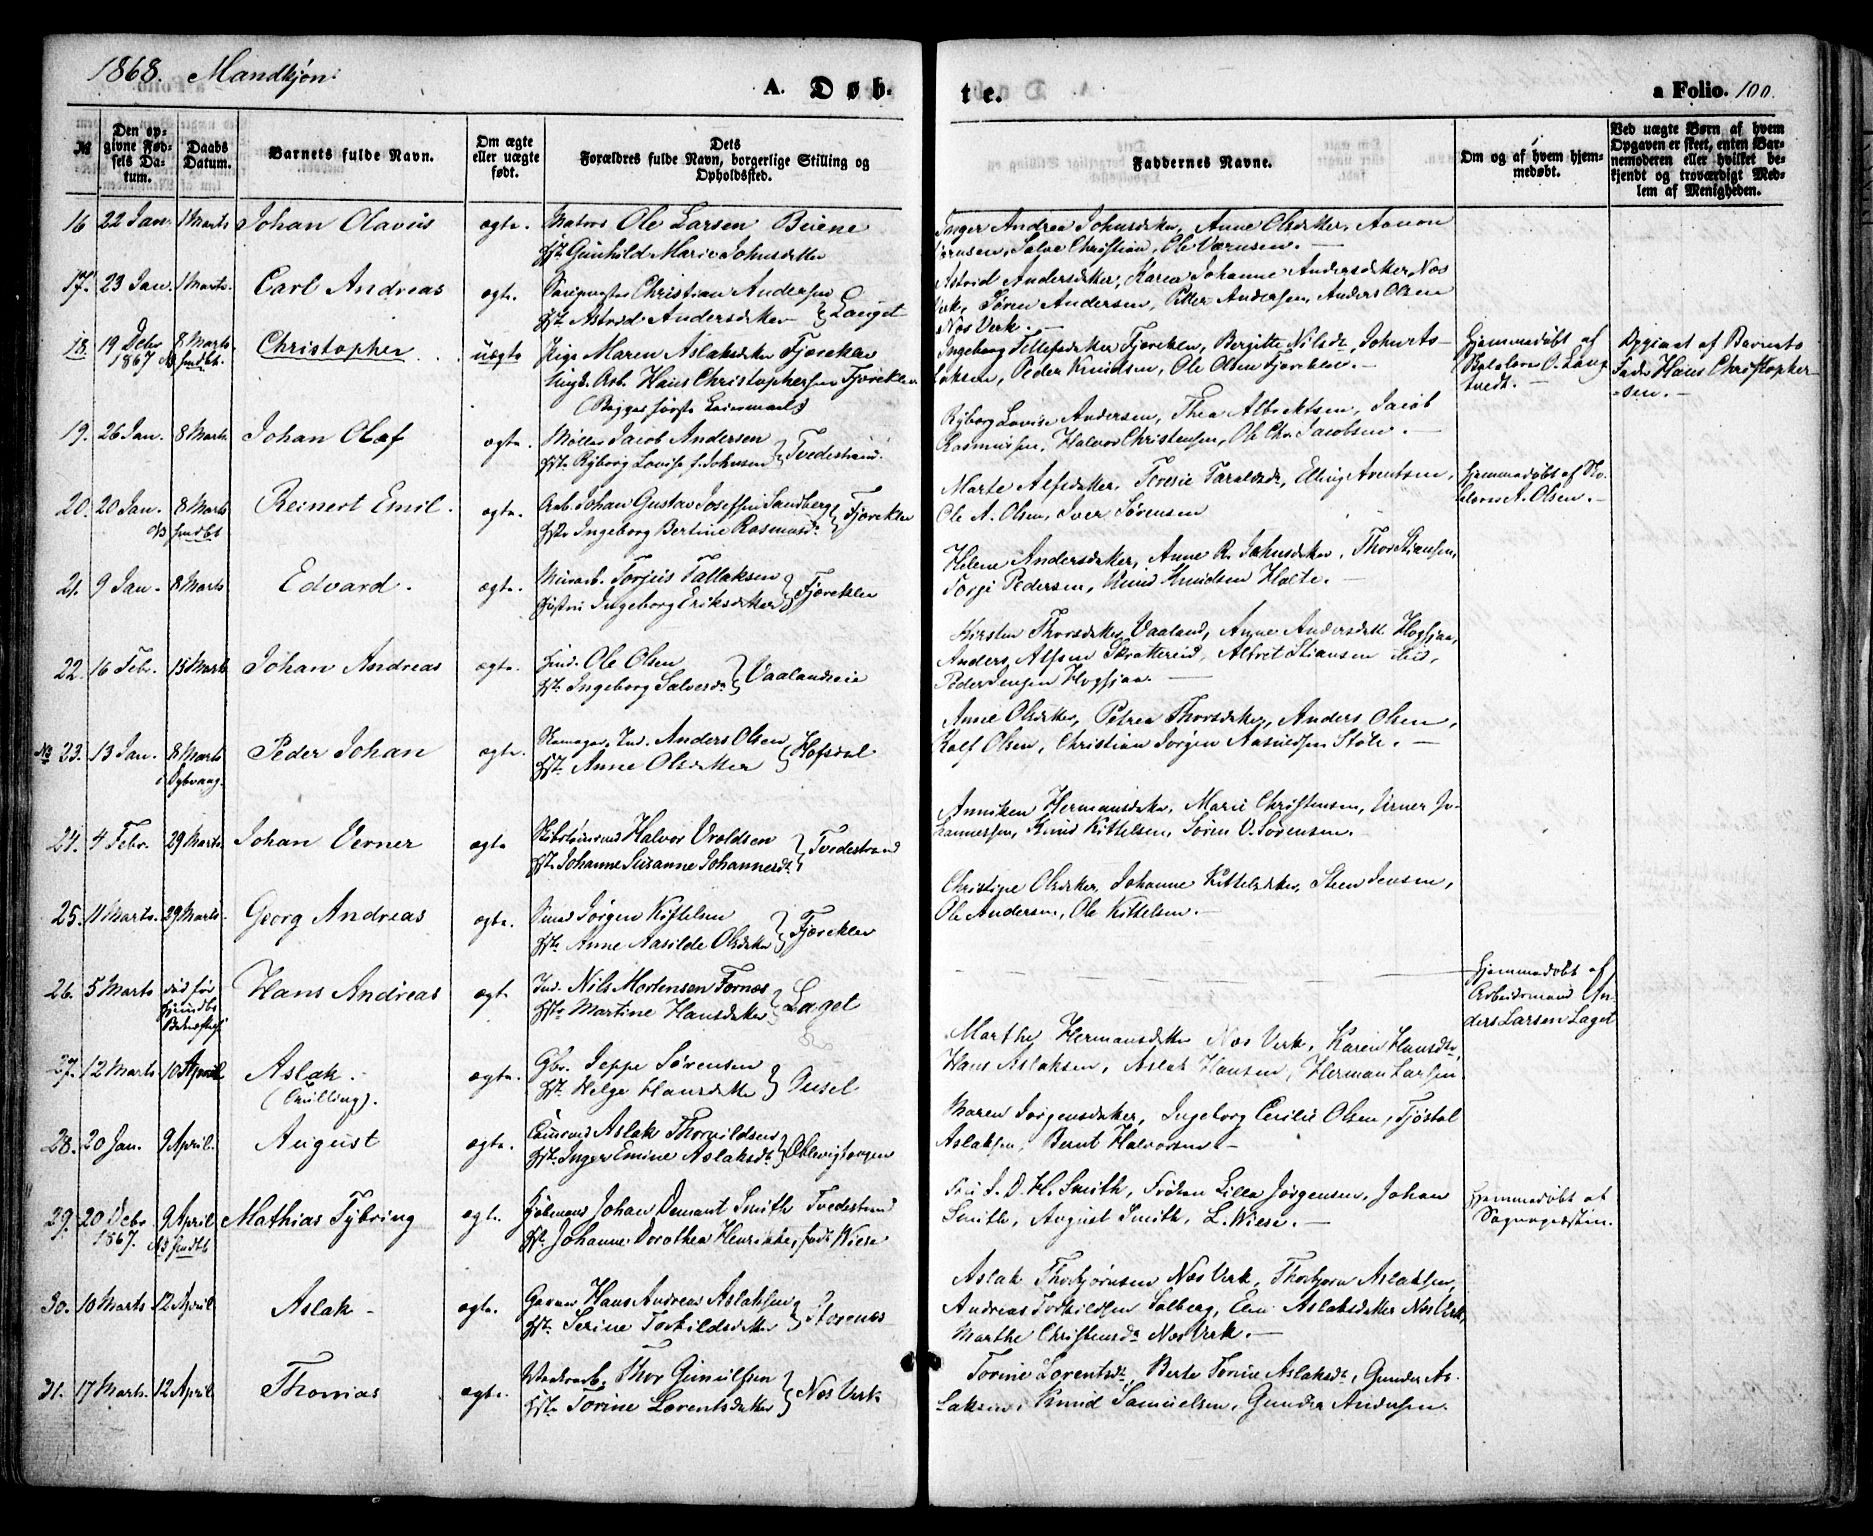 1868. Mandkjøn:
A. Døb-
te.
a Folio. 100.
№
Den op-
givne Fød-
sels Da-
tum.
Daabs
Datum.
Barnets fulde Navn.
Om ægte
eller uægte
født.
Dets
Forældres fulde Navn, borgerlige Stilling og
Opholdssted.
Faddernes Navne.
Om og af hvem hjem-
medøbt.
Ved uægte Børn af hvem
Opgaven er skeet, enten Bar-
nemoderen eller hvilket be-
kjendt og troværdigt Med-
lem af Menigheden.
16 22 Jan. 1 Marts Johan Olavus ægte. Matros Ole Larsen Buene
Gunhild Marie Johnsdatter
Inger Andrea Johnsdatter, Anne Olsdatter, Aanon
Salve Christian, Ole
17. 23 Jan. 1 Marts. Carl Andreas ægte. Christian Andersen
Astrid Andersdatter } Lauget
Astrid Andersdatter, Karen Johanne Andersdatter, Næs
Værk, Søren Andersen, Petter Andersen, Anders Olsen
Næs Verk.
18. 19 Debr 8 Marts. Christopher uægte Pige Maren Aslaksdatter Fjærekilen
1867
Ungk. Arb. Hans Christophersen Fjærekilen
(Begges første Leiermaal)
Ingeborg Tellefsdatter Fjærekilen, Bergitte Nilsdt, John
laksen, Peder Knudsen, Ole Olsen Fjærekilen.
Hjemmedøbt af
O. Lang-
tvedt.
Opgivet af Barnets
Fader Hans Christopher-
sen.
19. 26 Jan. 8 Marts Johan Olaf ægte. Møller Jacob Andersen
Ryborg Lovise f. Johnsen } Tvedestrand.
Ryborg Lovise Andersen, Thea Albrektsen, Jacob
Rasmussen, Halvor Christensen, Ole Chr. Jacobsen.
20. 20 Jan. 8 Marts Reinert Emil. ægte. Arb. Johan Gustav Josefsen Sandberg
Ingeborg Bertine Rasmusdr. } Fjærekilen
Marte Alfsdatter, Teresie Taraldsdt, Elling Arentsen,
Ole A. Olsen, Iver Sørensen
Hjemmedøbt af Sko-
lelærer A. Olsen.
21. 9 Jan. 8 Marts Edvard. ægte. Murarb. Torjus Tallaksen
Hustru Ingeborg Eriksdatter } Fjærekilen
Helene Andersdatter, Anne R. Jahnsdatter, Thor Stiansen,
Torje Pedersen, Knud Knudsen Holte.
22. 16 Febr. 15 Marts Johan Andreas ægte. Ind. Ole Olsen
Ingeborg Salvesdr } Vaalandseie
Kirsten Thorsdatter Vaaland, Anne Andersdatter Hogsjaa,
Anders Alfsen Skattereid, Alfret Stiansen ibid,
Peder Jensen Hogsjaa.
23. 13 Jan. 8 Marts Peder Johan ægte. Anders Olsen
i Dybvaag.
Anne Olsdatter } Hofsdal
Anne Olsdatter, Petrea Thorsdatter, Anders Olsen,
Rolf Olsen, Christian Jørgen Aasuldsen Støle.
24. 4 Febr. 29 Marts Johan Verner ægte Halvor Uroldsen
Johanne Suzanne Johannesdt. } Tvedestrand
Anniken Hermansdatter, Marie Christensen, Verner Jo-
hannessen, Knud Kittelsen, Søren V. Sørensen.
25. 11 Marts. 29 Marts. Georg Andreas ægte. Smed Jørgen Kittelsen
Anne Aasilde Olsdatter } Fjærekilen
Christine Olsdatter, Johanne Kittelsdatter, Steen Jensen,
Ole Andersen, Ole Kittelsen.
26. 5 Marts død før Hans Andreas ægt. Ind. Nils Mortensen Fornæs
Martine Hansdatter } Laget
Hjemmedøbt af
Arbeidsmand An-
ders Larsen Laget
27. 12 Marts 10 April Aslak. ægte. Gbr. Jeppe Sørensen
(Tvilling).
Helge Hansdatter } Ousel
Marthe Hermansdatter Næs Verk, Karen Hansdtr,
Hans Aslaksen, Aslak Hansen, Herman Larsen.
28. 20 Jan. 9 April. August ægte. Aslak Thorvildsen
Inger Emine Aslaksdt.
Maren Jørgensdatter, Ingeborg Cecilie Olsen, Tjøstol
Aslaksen, Bernt Halvorsen
29. 20 Debr 9 April Mathias Tybring ægt. Kjøbmand Johan Demant Smith Tvedestrand
1867.
Johanne Dorothea Henrikke, født Wiese
Fru J. D. H. Smith, Frøken Lilla Jørgensen, Johan
Smith, August Smith, L. Wiese.
Hjemmedøbt af
Sognepræsten.
30. 10 Marts. 12 April Aslak ægte. Hans Andreas Aslaksen
Serine Torkildsdatter
Aslak Thorbjørnsen Næs Verk, Thorbjørn Aslaksen,
Andreas Torkildsen Solberg, Aslaksdatter Næs Værk,
Marthe Christensdr Næs Verk.
31. 17 Marts. 12 April Thomas ægte. Thor Gunulfsen
Torine Lorentsdatter } Næs Verk
Torine Lorentsdt, Berte Torine Aslaksdt, Gunder As-
laksen, Knud Samuelsen, Gunder Andersen.